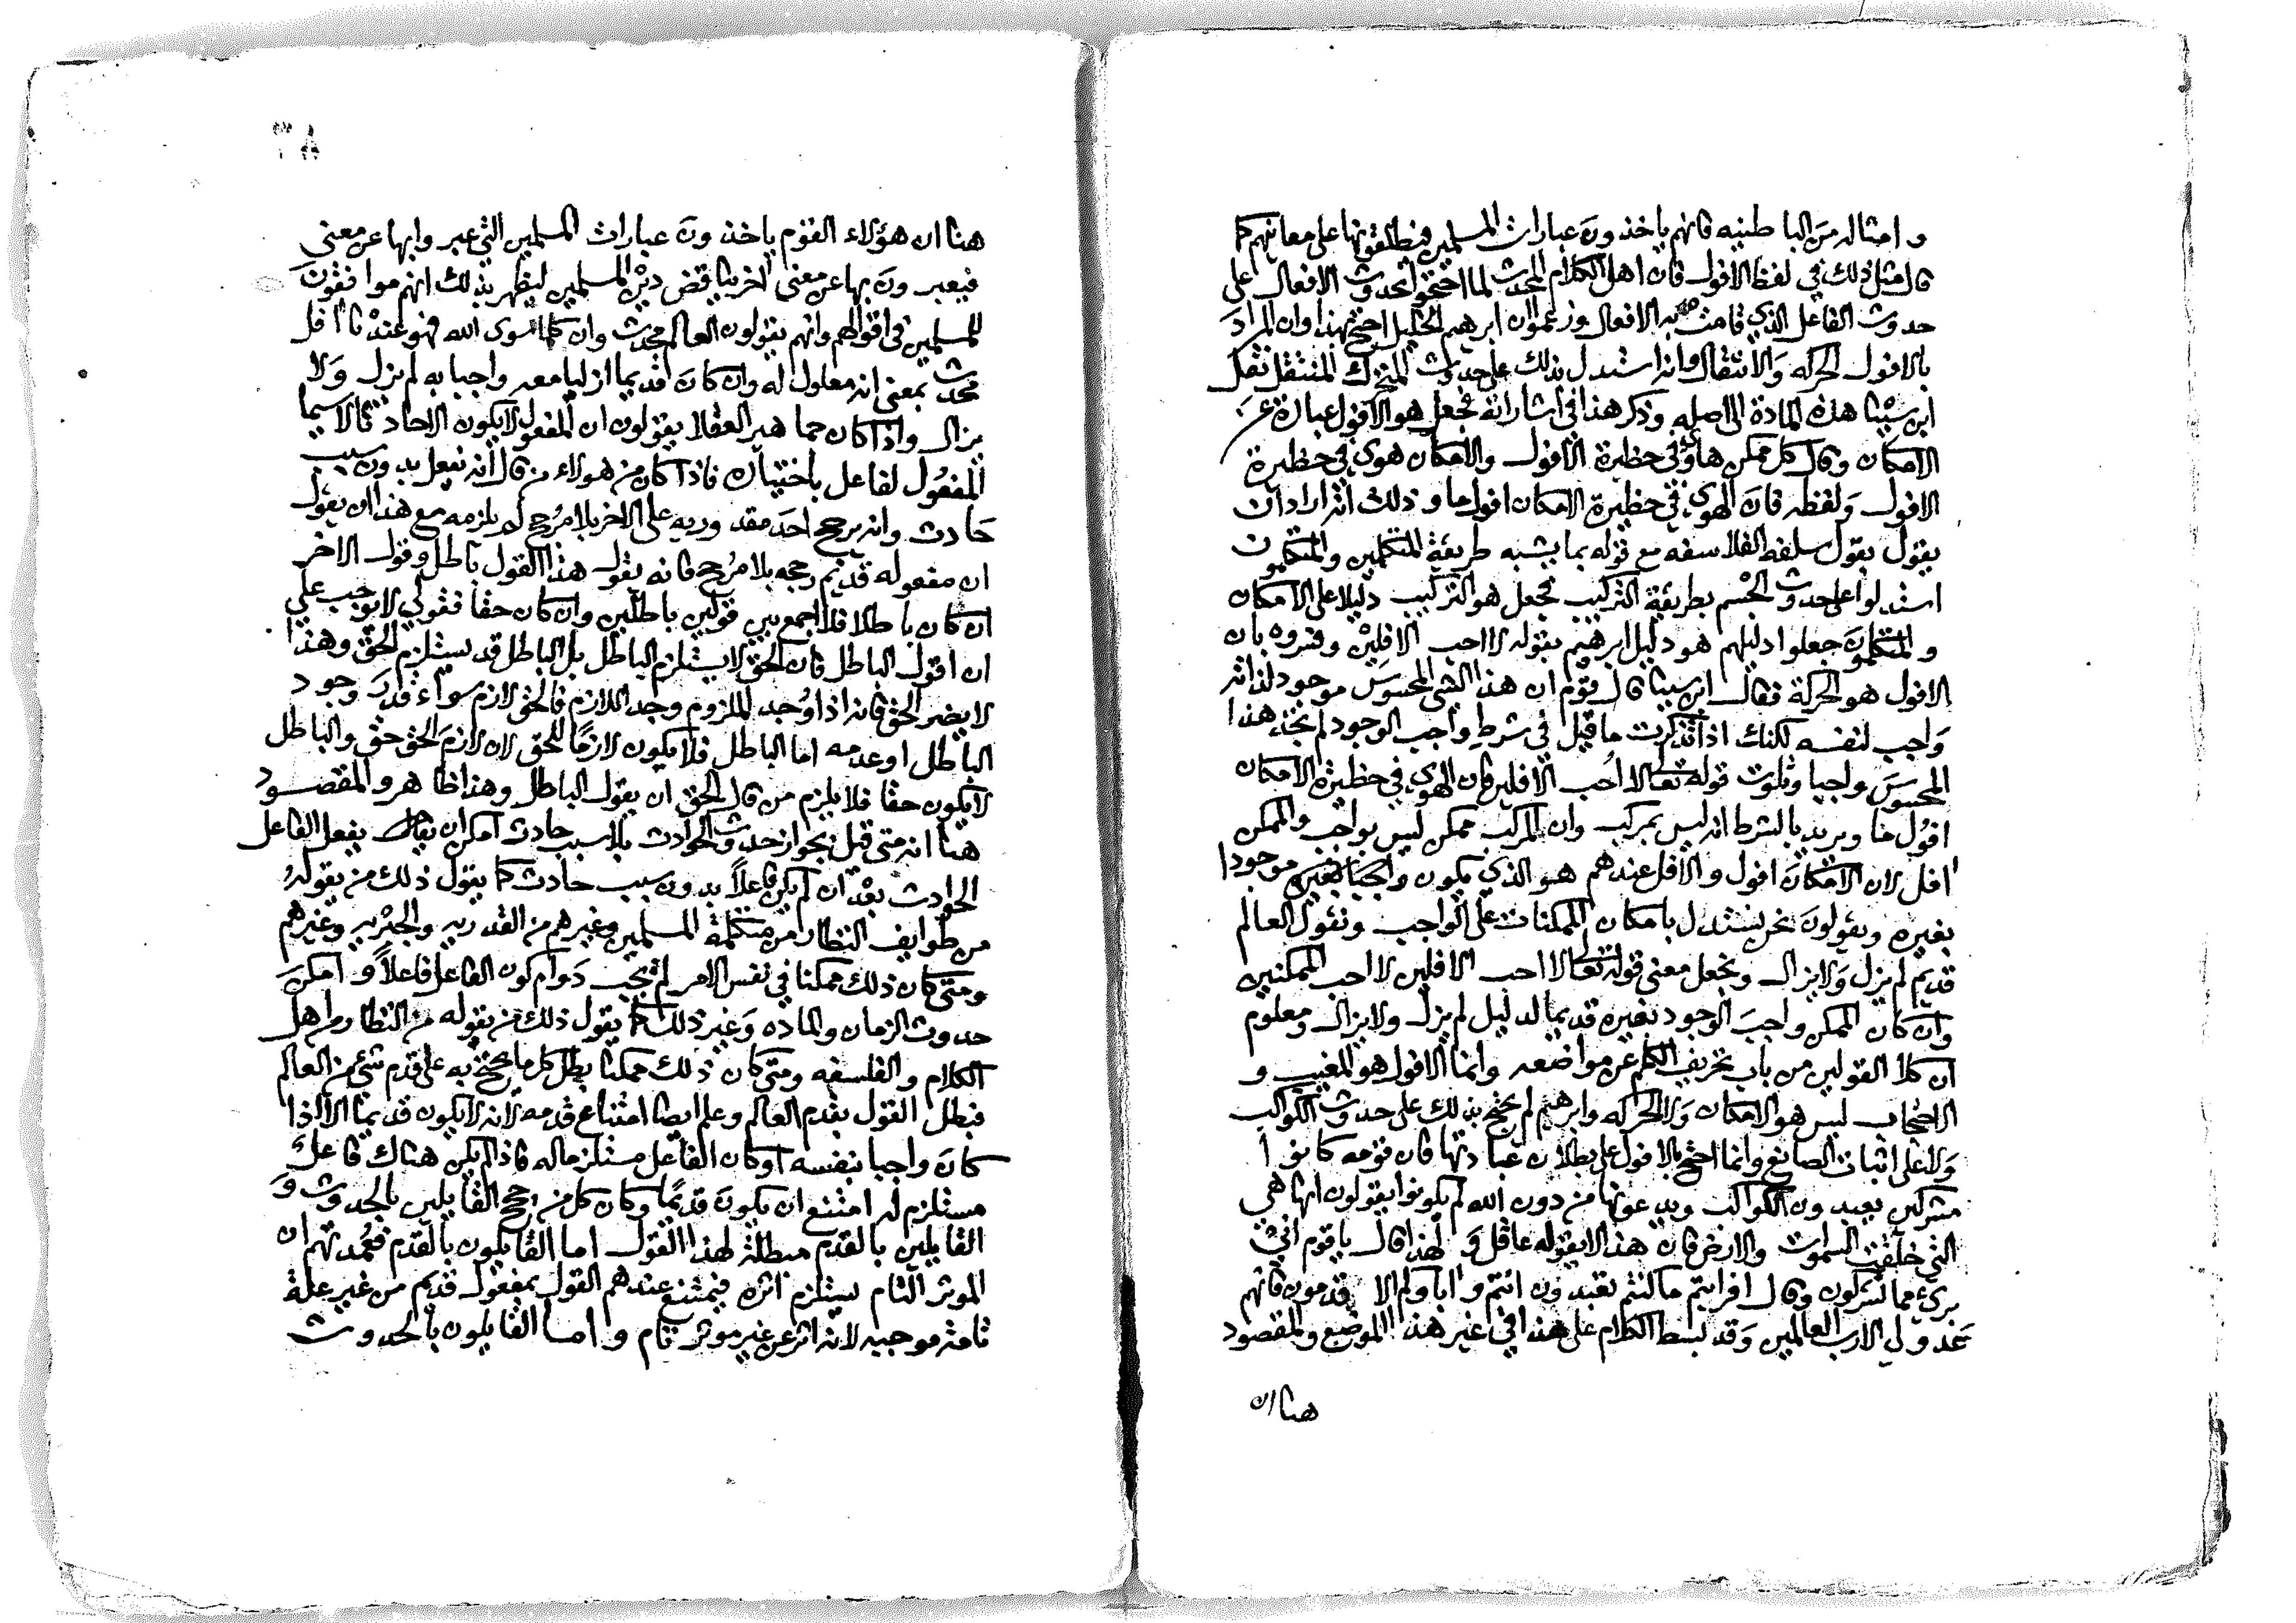 و امثاله من الباطنيه فانهم ياخذون عبارات المسلمين فيطلقونها على معانيهم كما
قال مثل ذلك في لفظ الافول فان اهل الكلام المحدث لما احتجوا بحدوث الافعال على
حدوث الفاعل الذي قامت به الافعال وزعموا ان ابرهيم الخليل احتج بهذا وان المراد
بالافول الحركه والانتقال وانه استدل بذلك على حدوث المتحرك المنتقل نقل
ابن سينا هذه المادة الى اصله وذكر هذا في اشاراته فجعل هو الافول عبارة عن
الامكان وقال كل ممكن هاوٍ في حظيرة الافول والامكان هوي في حظيرة
الافول ولفظه فان الهوي في حظيرة الامكان افول ما و ذلك انه اراد ان
يقول بقول سلفه الفلاسفه مع قوله بما يشبه طريقة المتكلمين والمتكلمون
استدلوا على حدوث الجسم بطريقة التركيب فجعل هو التركيب دليلا على الامكان
و المتكلمون جعلوا دليلهم هو دليل ابرهيم بقوله لا احب الافلين وفسروه بان
الافول هو الحركة فقال ابن سينا قال قوم ان هذا الشي المحسوس موجود لذاته
واجب لنفسه لكنك اذا تذكرت ما قيل في شرط واجب الوجود لم تجد هذا
المحسوس واجبا وتلوت قوله تعالى لا احب الافلين فان الهوي في حظيرة الامكان
افول ما ويريد بالشرط انه ليس بمركب وان المركب ممكن ليس بواجب والممكن
افل لان الامكان افول و الافل عندهم هو الذي يكون واجبا بغيره موجودا
بغيره ويقولون نحن نستدل بامكان الممكنات على الواجب ونقول العالم
قديم لم يزل ولا يزال ونجعل معنى قوله تعالى لا احب الافلين لا احب الممكنين
وان كان الممكن واجب الوجود بغيره قديما لم يزل ولا يزال ومعلوم
ان كلا القولين من باب تحريف الكلم عن مواضعه وانما الافول هو المغيب و
الاحتجاب ليس هو الامكان ولا الحركه وابرهيم لم يحتج بذلك على حدوث الكواكب
ولا على اثبات الصانع وانما احتج بالافول على بطلان عبادتها فان قومه كانوا
مشركين يعبدون الكواكب ويدعونها من دون الله لم يكونوا يقولون انها هي
التي خلقت السموات والارض فان هذا لا يقوله عاقل و لهذا قال يا قوم اني
بريء مما تشركون وقال افرايتم ما كنتم تعبدون انتم و اباوكم الاقدمون فانهم
عدو لي الا رب العالمين وقد بسط الكلام على هذا في غير هذا الموضع والمقصود
هنا ان
هنا ان هؤلاء القوم ياخذون عبارات المسلمين التي عبروا بها عن معنى
فيعبرون بها عن معنى اخر يناقض دين المسلمين ليظهر بذلك انهم موافقون
للمسلمين في اقوالهم وانهم يقولون العالم محدث وان كل ما سوى الله فهو عندنا افل
محدث بمعنى انه معلول له وان كان قديما ازليا معه واجبا به لم يزل ولا
يزال واذا كان جماهير العقلا يقولون ان المفعول لا يكون الا حادثا لا سيما
المفعول لفاعل باختياره فاذا كان من هولاء من قال انه يفعل بدون سبب
حادث وانه يرجح احد مقدوريه على الاخر بلا مرجح لم يلزمه مع هذا ان يقول
ان مفعوله قديم رجحه بلا مرجح فانه يقول هذا القول باطل وقول الاخر
ان كان باطلا فلا اجمع بين قولين باطلين وان كان حقا فقولي لا يوجب علي
ان اقول الباطل فان الحق لا يستلزم الباطل بل الباطل قد يستلزم الحق وهذا
لا يضر الحق فانه اذا وجد الملزوم وجد اللازم فالحق لازم سواء قدر وجود
الباطل او عدمه اما الباطل فلا يكون لازما للحق لان لازم الحق حق والباطل
لا يكون حقا فلا يلزم من قال الحق ان يقول الباطل وهذا ظاهر والمقصود
هنا انه متى قيل بجواز حدوث الحوادث بلا سبب حادث امكن ان يقال يفعل الفاعل
الحوادث بعد ان لم يكن فاعلاً بدون سبب حادث كما يقول ذلك من يقوله
من طوايف النظار من متكلمة المسلمين وغيرهم من القدريه والجبريه وغيرهم
ومتى كان ذلك ممكنا في نفس الامر لم يجب دوام كون الفاعل فاعلاً و امكن
حدوث الزمان والماده وغير ذلك كما يقول ذلك من يقوله من النظار من اهل
الكلام والفلسفه ومتى كان ذلك ممكنا بطل كل ما يحتج به على قدم شيء من العالم
فبطل القول بقدم العالم وعلم ايضا امتناع قدمه لانه لا يكون قديما الا اذا
كان واجبا بنفسه او كان الفاعل مستلزما له فاذا لم يكن هناك فاعل
مستلزم له امتنع ان يكون قديما وكان كل من حجج القايلين بالحدوث و
القايلين بالقدم مبطلة لهذا القول اما القايلون بالقدم فعمدتهم ان
الموثر التام يستلزم اثره فيمتنع عندهم القول بمفعول قديم من غير علة
تامة موجبه لانه اثر عن غير موثر تام و اما القايلون بالحدوث